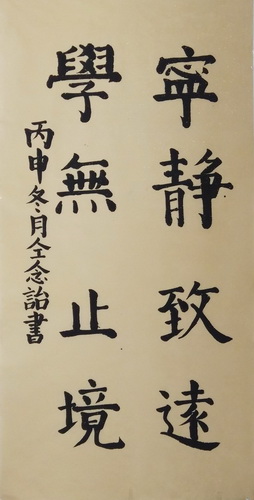 寧靜致遠
學無止境
丙申冬月仝念詒書